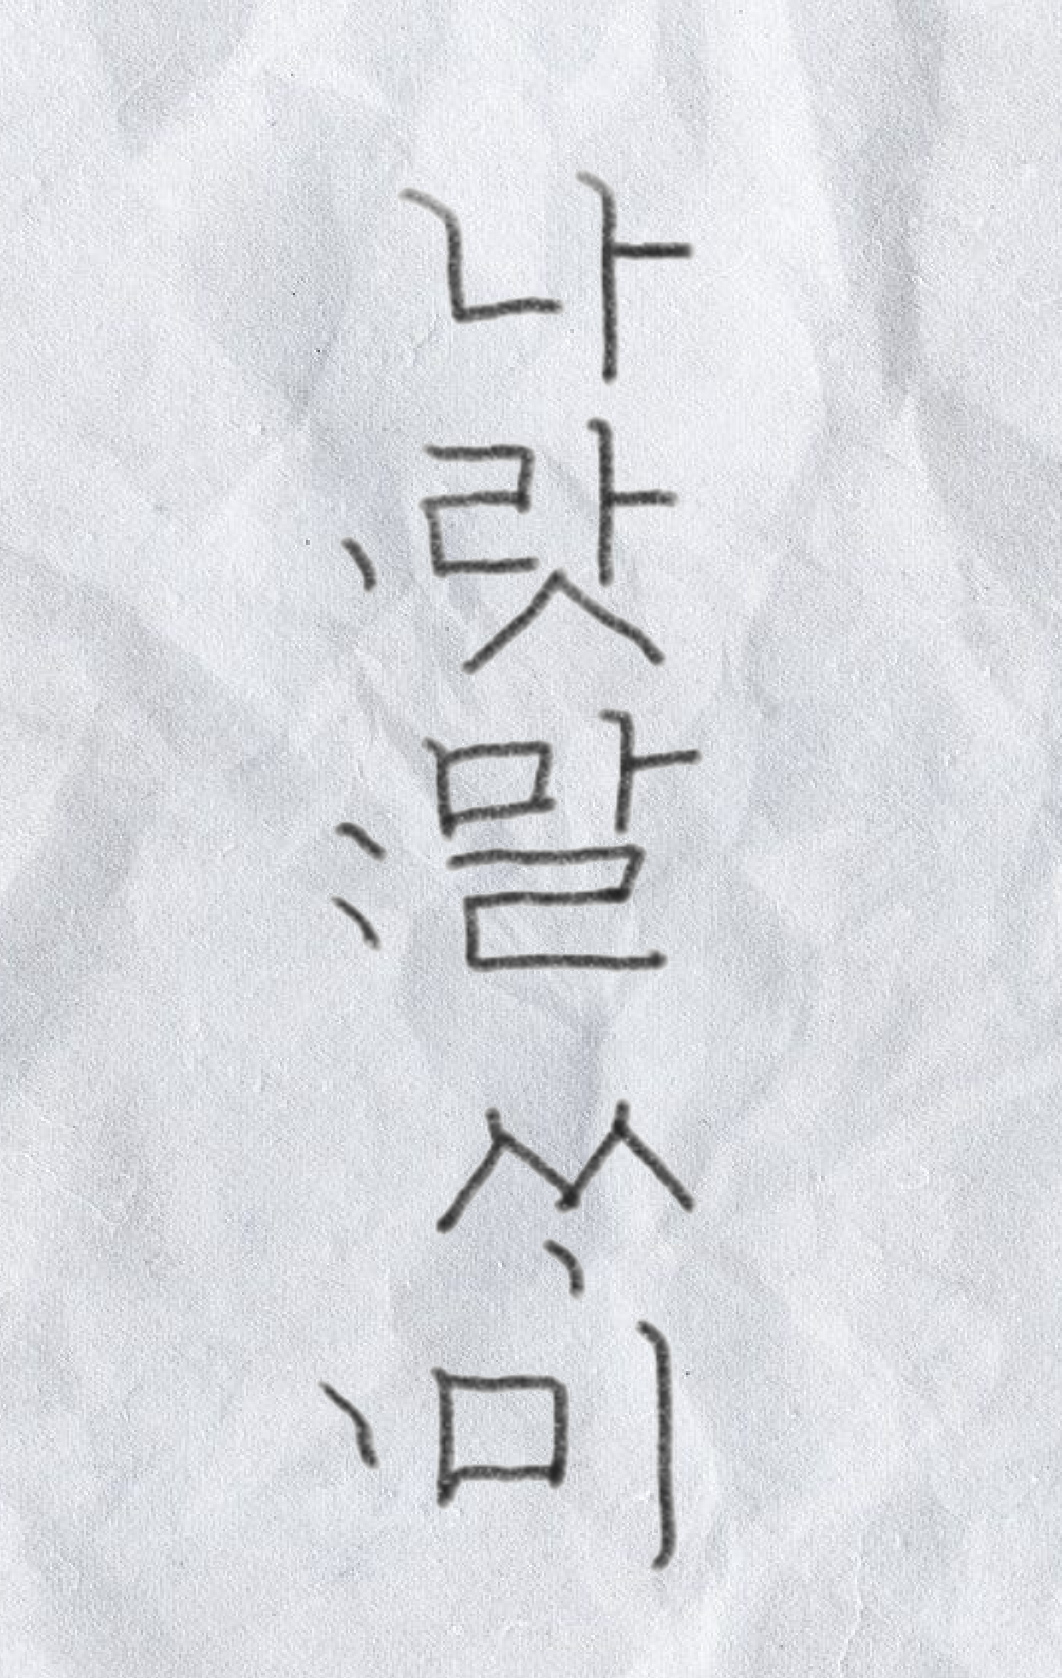 나랏〮말〯ᄊᆞ미〮